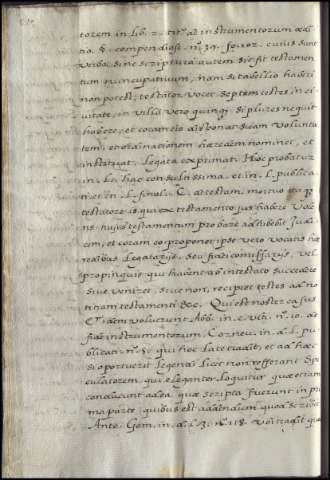 torem in Lib. 2. tit. de instrumentorum edi
tio. §. compendiose. n. 39. fo. 102. cuius sunt
verba. si ne scriptura autem sic fit testamen
tum nuncupativum, nam si tabellio haberi
non potest, testator vocet septem testes in ci
vitate, in villis vero quinq si plures nequit
habere, et coram eis disponat suam volunta
tem, et ordinationem heredem nominet, et
instituat, Legata exprimat. Hoc probatur
in. L. hac consultissima. et in. L. publica
ti. et in L. final. C. de testam. mortuo
testatore is qui ex testamento jus habere vole
ns, hujus testamentum probare adhibebit Judi
cem, et coram eo proponet ipse vero vocatis hæ
redibus Legatarijs, seu fidei comissarijs, vel
propinquis qui haberent ab intestato succedere
sive veniret, sive non, recipiet testes ad no
titiam testamenti &c. Qui est noster casus
Et idem voluerunt Abb. in. c. n. 10. de
fide instrumentorum Corneus. in. d. L. pu
blicati. n. 8. qui hoc Late tradit, et ad hæc
si oportuerit legenda Licet non refferam Spe
culatorem, qui eleganter Loquitur quæ etiam
conducunt ad ea quæ scripta fuerunt in pri
ma parte, quibus est addendum quod scribit
Ante. Gom. in. d. L. 3. n. 118. ubi tradit qu